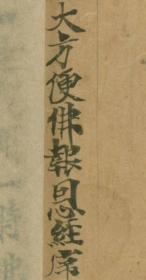 大方便佛報恩経序